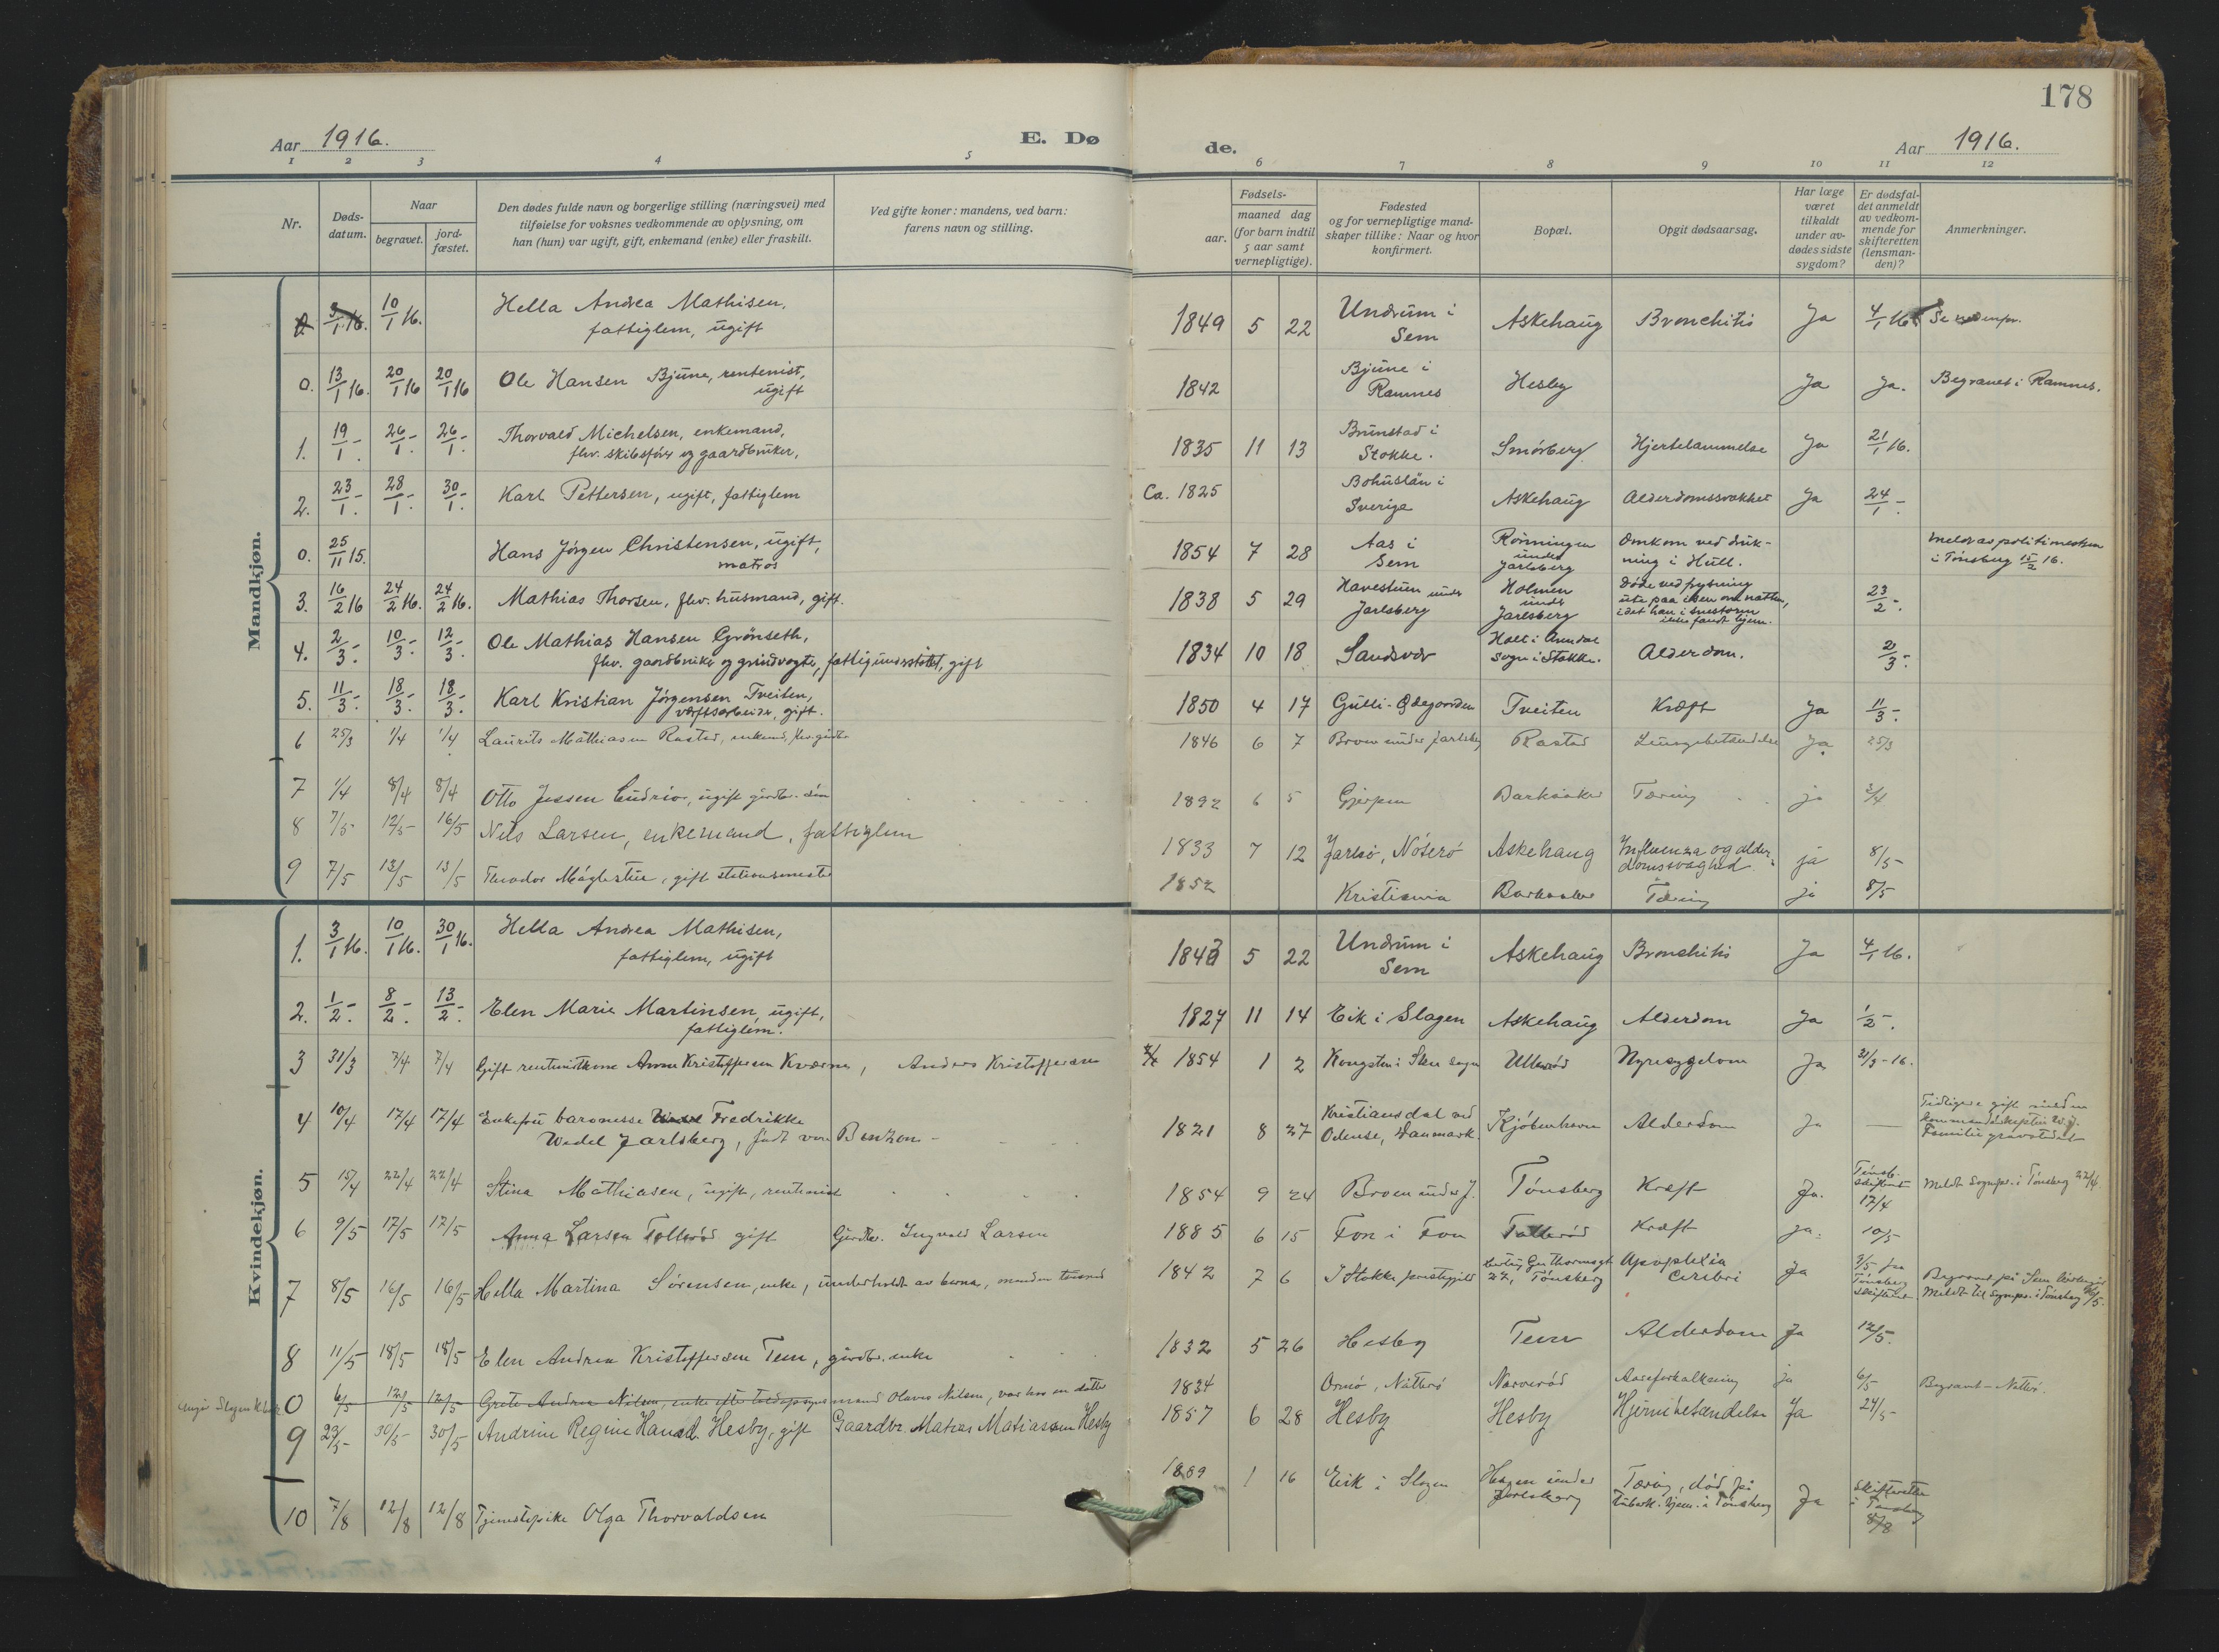 178
Aar 1916.
E. Dø
de.
Aar 1916.
1 2 3 4 5 6 7 8 9 10 11 12
Nr.
Døds-
datum.
Naar
begravet.
jord-
fæstet.
Den dødes fulde navn og borgerlige stilling (næringsvei) med
tilføielse for voksnes vedkommende av oplysning, om
han (hun) var ugift, gift, enkemand (enke) eller fraskilt.
Ved gifte koner: mandens, ved barn:
farens navn og stilling.
Fødsels-
aar.
maaned dag
(for barn indtil
5 aar samt
vernepligtige).
Fødested
og for vernepligtige mand-
skaper tillike: Naar og hvor
konfirmert.
Bopæl.
Opgit dødsaarsag.
Har læge
været
tilkaldt
under av-
dødes sidste
sygdom?
Er dødsfal-
det anmeldt
av vedkom-
mende for
skifteretten
(lensman-
den)?
Anmerkninger.
Mandkjøn.
3/1 16. 10/1 16. Hella Andrea Mathisen, 1849 5 22 Undrum i Askehaug Bronchitis Ja 4/1 16
fattiglem, ugift Sem
0. 13/1 16. 20/1 16 20/1 16 Ole Hansen Bjune, rentenist, 1842 Bjune i Hesby Ja Ja. Begravet i Ramnes.
ugift Ramnes
1. 19/1 - 26/1 - 26/1 - Thorvald Michelsen, enkemand, 1835 11 13 Brunstad i Smørberg Hjertelammelse Ja 21/1 16.
fhv. skibsfører og gaardbruker, Stokke.
2. 23/1 - 28/1 - 30/1 - Karl Pettersen, ugift, fattiglem Ca. 1825 Bohuslän i Askehaug Alderdomssvakhet Ja 24/1 -
Sverige
0. 25/11 15. Hans Jørgen Christensen, ugift, 1854 7 28 Aas i Rønningen Omkom ved druk- Meldt av politimesteren
matros Sem under Jarlsberg ning i Hull. i Tønsberg 15/2 16.
3. 16/2 16 24/2 16. 24/2 16. Mathias Thorsen, fhv. husmand, gift. 1838 5 29 Havestuen under Holmen Døde ved frysning 23/2 -
Jarlsberg under Jarlsberg ute paa isen om natten,
idet han i snestorm
ikke fandt hjem.
4. 2/3 - 10/3 - 12/3 - Ole Mathias Hansen Grønseth, 1834 10 18 Sandsvær Holt i Arendal Alderdom. 2/3 -
fhv. gaardbruker og grindvogter, fattigunderstøttet, gift sogn i Stokke.
5. 11/3 - 18/3 - 18/3 - Karl Kristian Jørgensen Tveiten, 1850 4 17 Gulli-Ødegaarden Tveiten Kræft Ja 11/3 -
værftsarbeider, gift.
6 25/3 1/4 1/4 Laurits Mathiasen Rastad, enkemd, fhv. gårdbr 1846 6 7 Broen under Jarlsberg Rastad Lungebetændelse Ja 25/3
7 1/4 8/4 8/4 Otto Jessen ugift gårdbr. søn 1892 6 5 Gjerpen Barkåker Tæring ja 3/4
8 7/5 12/5 16/5 Nils Larsen, enkemand, fattiglem 1833 7 12 Jarlsø, Nøterø Askehaug Influenza og alder- ja 8/5 -
domssvaghed
9 7/5 13/5 13/5 Theodor gift stationsmester 1852 Kristiania Barkåker Tæring ja 8/5
Kvindekjøn.
1. 3/1 16. 10/1 16. 30/1 16. Hella Andrea Mathisen, 1843 5 22 Undrum i Askehaug Bronchitis Ja 4/1 16.
fattiglem, ugift Sem
2. 1/2 - 8/2 - 13/2 - Elen Marie Martinsen, ugift, 1827 11 14 Eik i Slagen Askehaug Alderdom Ja 1/2 -
fattiglem.
3 31/3 7/4 7/4 Gift rentenistkone Anne Kristoffersen Kværne, Anders Kristoffersen 1854 1 2 Kongsten i Sem sogn Ullerød Nyresygdom Ja 31/3 - 16.
4 10/4 17/4 17/4 Enkefru baronesse Fredrikke 1821 8 27 Kristiansdal ved Kjøbenhavn Alderdom Ja — Tidligere gift med
Wedel Jarlsberg, født von Benzon - Odense, Danmark.
Familie gravsted
5 15/4 22/4 22/4 Stina Mathiasen, ugift, rentenist 1854 9 24 Broen under J. Tønsberg Kræft Ja. Tønsb. skifteret 17/4 Meldt Sognepr. i Tønsberg 22/4
6 9/5 17/5 17/5 Anna Larsen Tollerød gift Gårdbr. Ingvald Larsen 1885 6 15 Fon i Fon Tollerød Kræft ja. 10/5
7 8/5 16/5 16/5 Hella Martina Sørensen, enke, underholdt av barna, 1842 7 6 I Stokke præstegjeld 27, Tønsberg Apoplexia Ja 9/5 fra Begravet på Sem kirkegård
Cerebri Tønsberg skifteret Meldt til sognepr. i Tønsberg 16/5.
8 11/5 18/5 18/5 Elen Andrea Kristoffersen Tem, gårdbr. enke 1832 5 26 Hesby Tem Alderdom Ja 12/5.
0 6/5 12/5 12/5 Grete Andrea Nilsen, enke efter toldopsynsmand Olaves Nilsen, 1834 Ormø, Nøtterø Narverød Aareforkalkning ja 6/5 Begravet - Nøtterø.
9 23/5 - 30/5 - 30/5 Andrine Regine Hansd. Hesby, gift Gaardbr. Matias Matiassen Hesby 1857 6 28 Hesby Hesby Hjernebetændelse Ja 24/5 -
10 7/8 12/8 12/8 Tjenestepike Olga Thorvaldsen 1889 1 16 Eik i Slagen Hagen under Tæring, død på Ja Skifteretten
Jarlsberg tuberk. hjem. i Tønsberg i Tønsberg
8/8